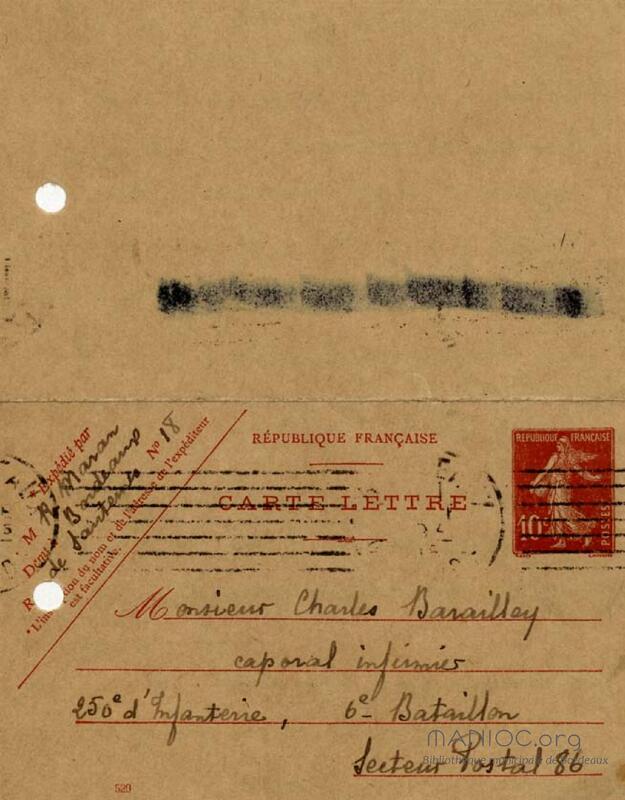 RÉPUBLIQUE FRANÇAISE
CARTE-LETTRE
RÉPUBLIQUE FRANÇAISE
10c
POSTES
* Expédié par
M R. Maran
Bordeaux
de Saintents N° 18
* L'inscription du nom et de l'adresse de l'expéditeur
est facultative.
Monsieur Charles Barailley
caporal infirmier
250e d'Infanterie, 6e Bataillon
Secteur Postal 86
MANIOC.org
Bibliothèque municipale de Bordeaux
529